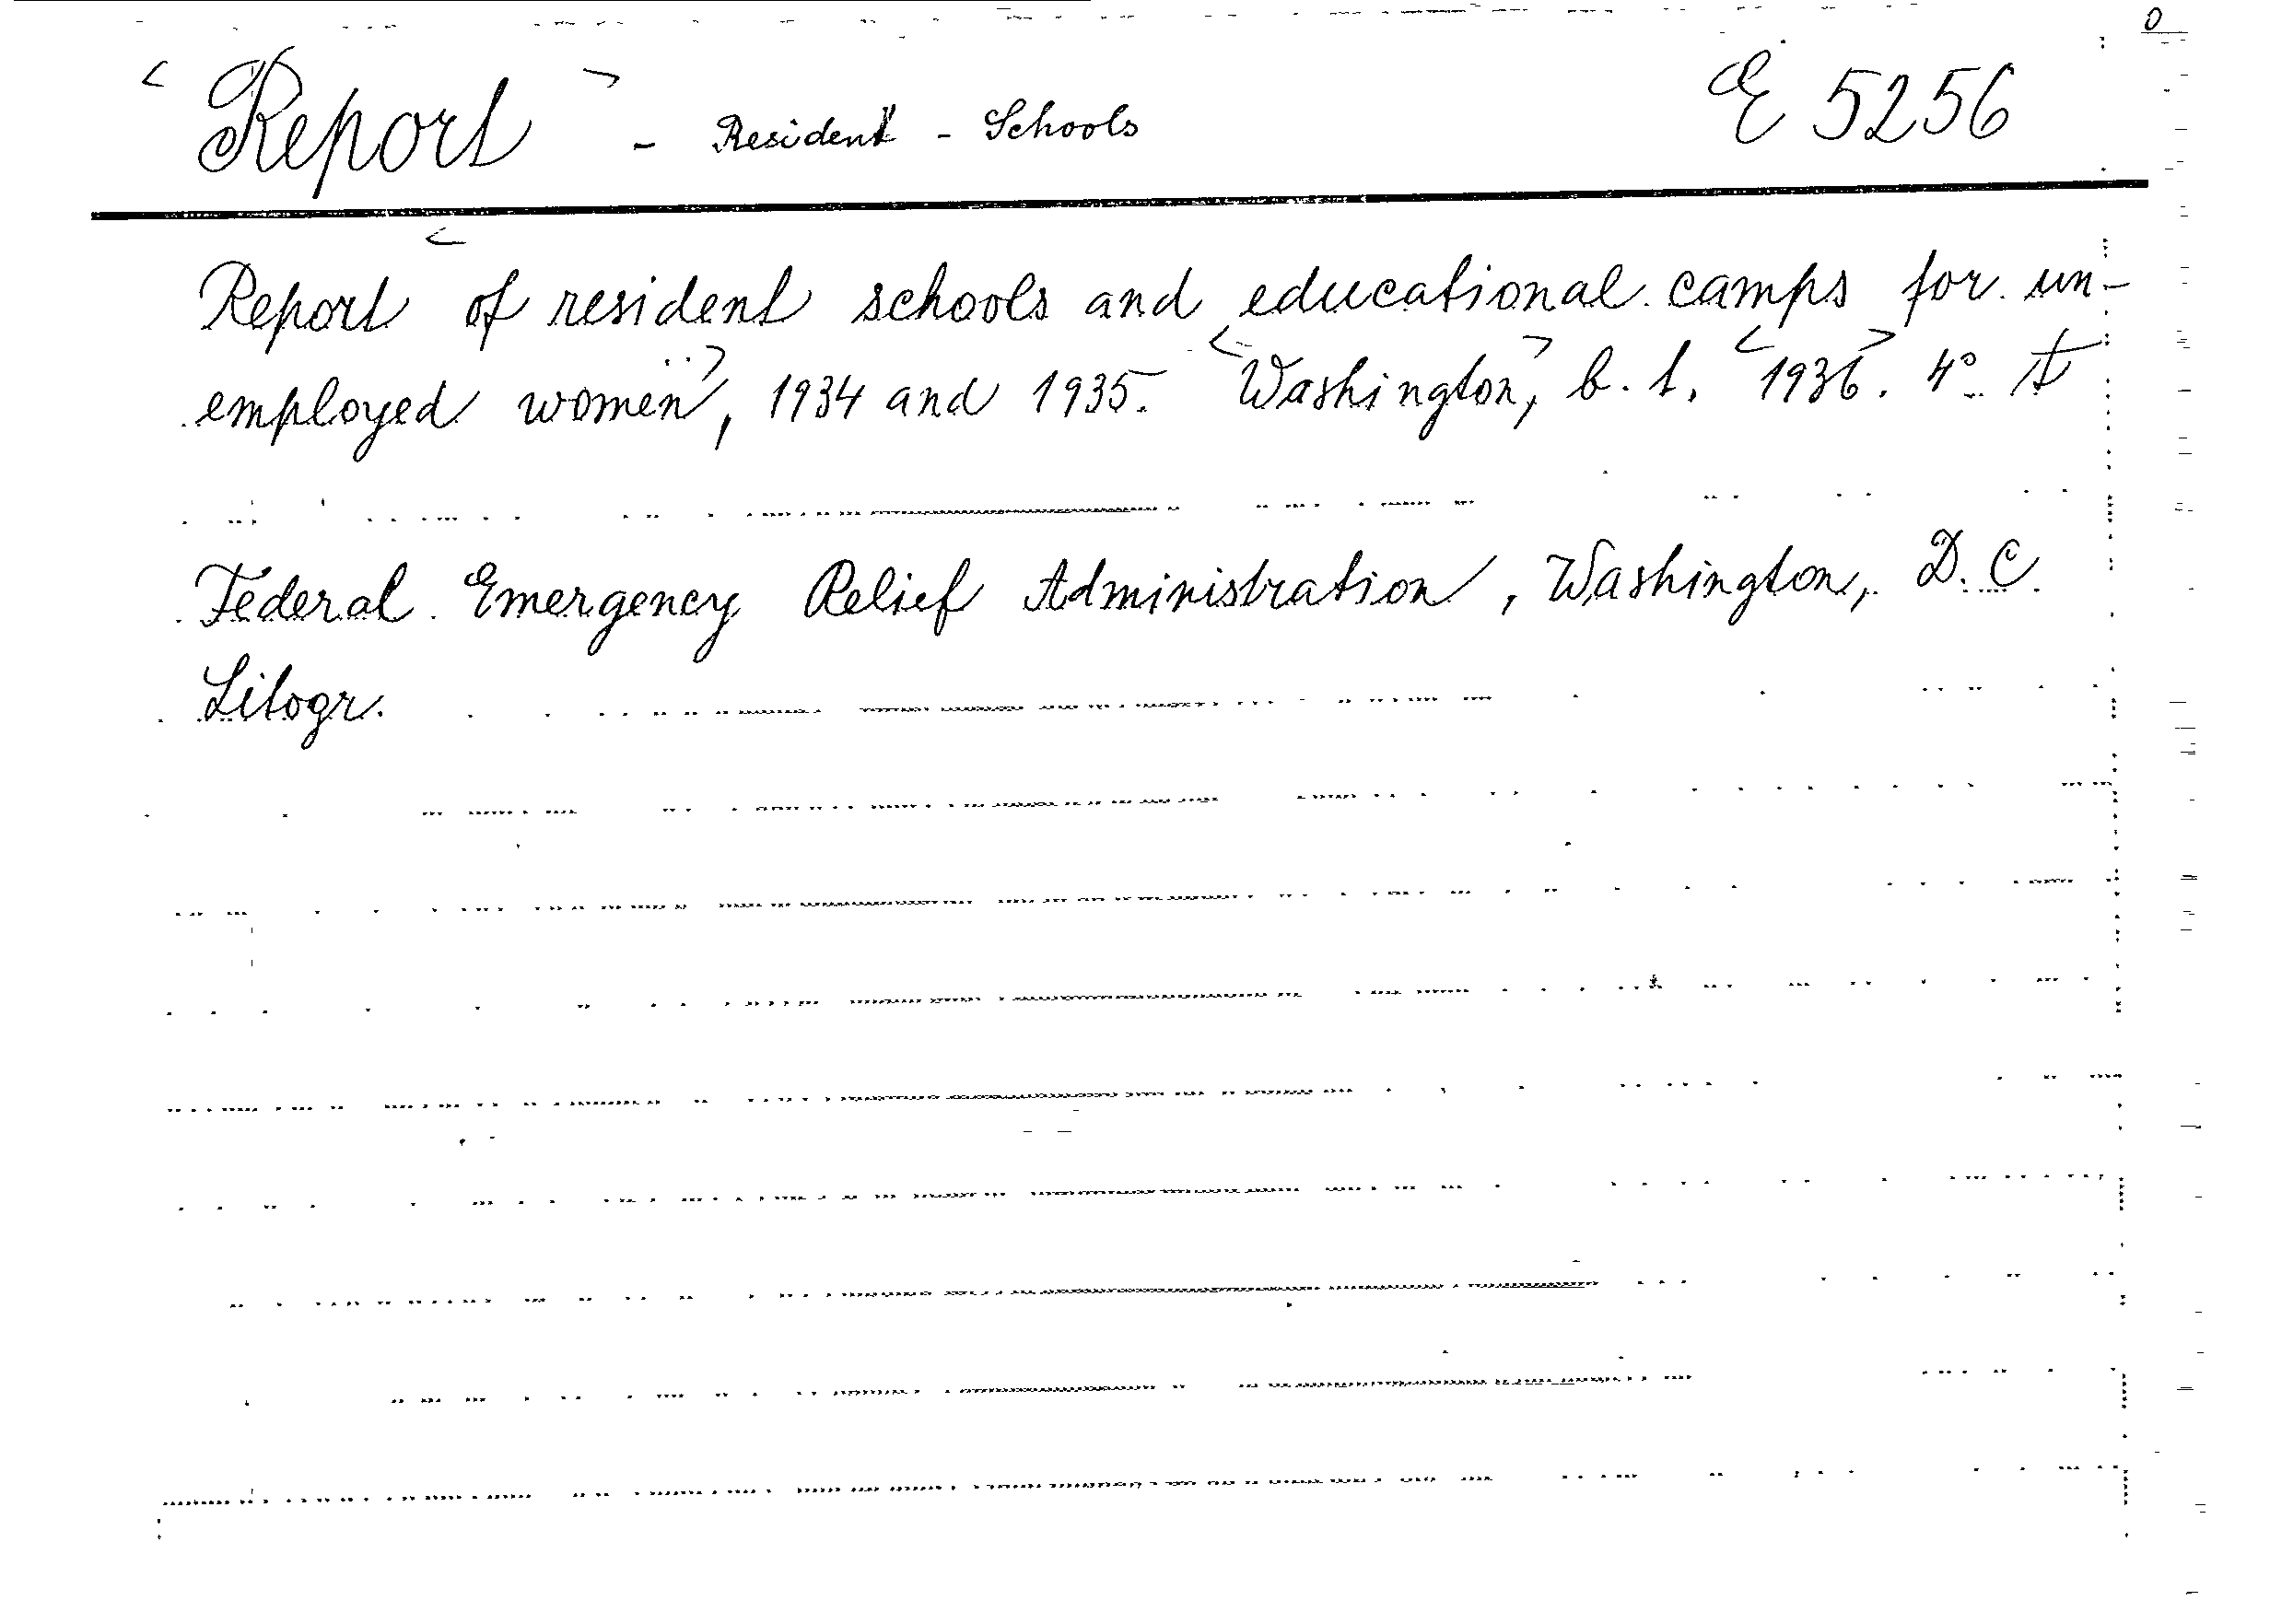 <Report> - Resident - Schools E 5256
Report <of resident schools and educational camps for un-
employed women>, 1934 and 1935. <Washington>, b. t. <1936>. 4° A
Federal Emergency Relief Administration, Washington, D. C.
Litogr.